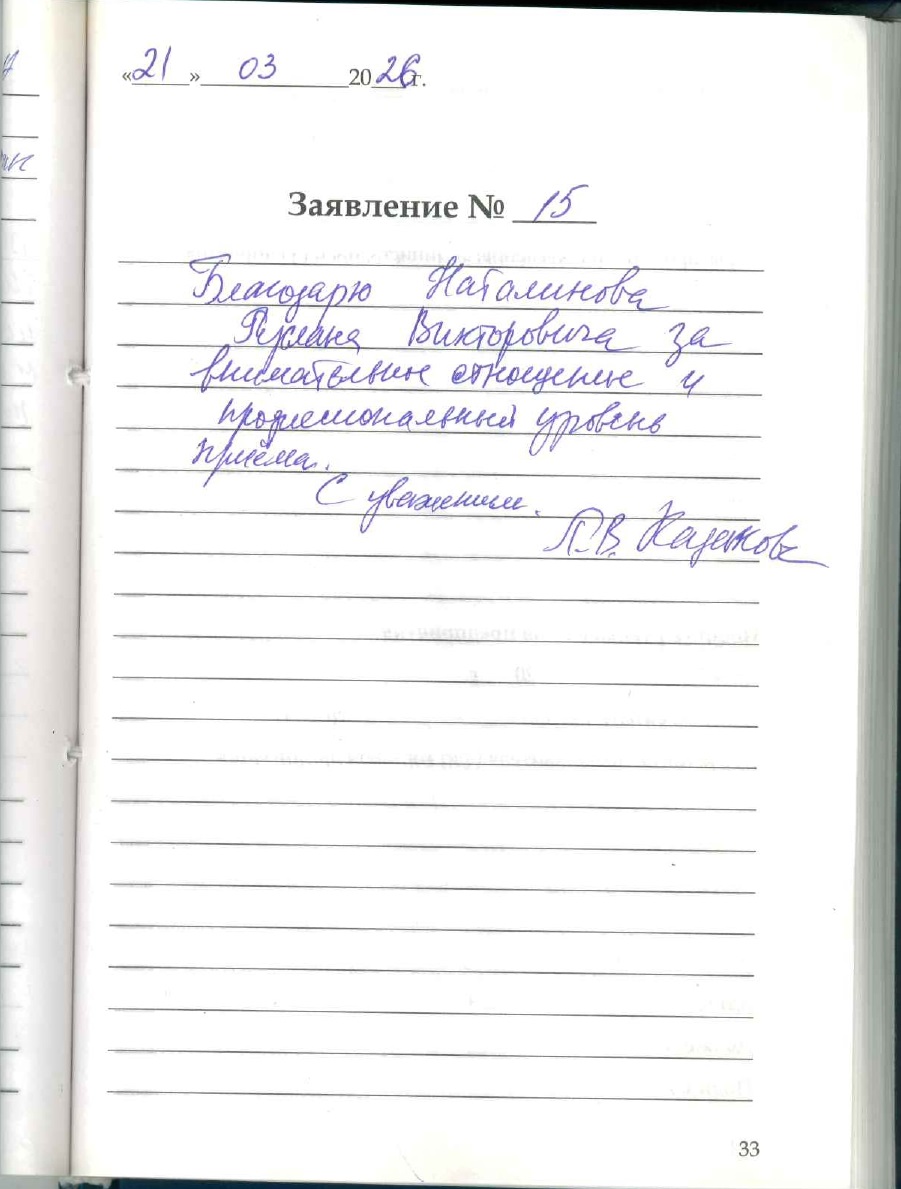 «21» 03 2026 г.
Заявление № 15
Благодарю Наталинова
Руслана Викторовича за
внимательное отношение и
профессиональный уровень
приёма.
С уважением.
Л.В. Казакова
33